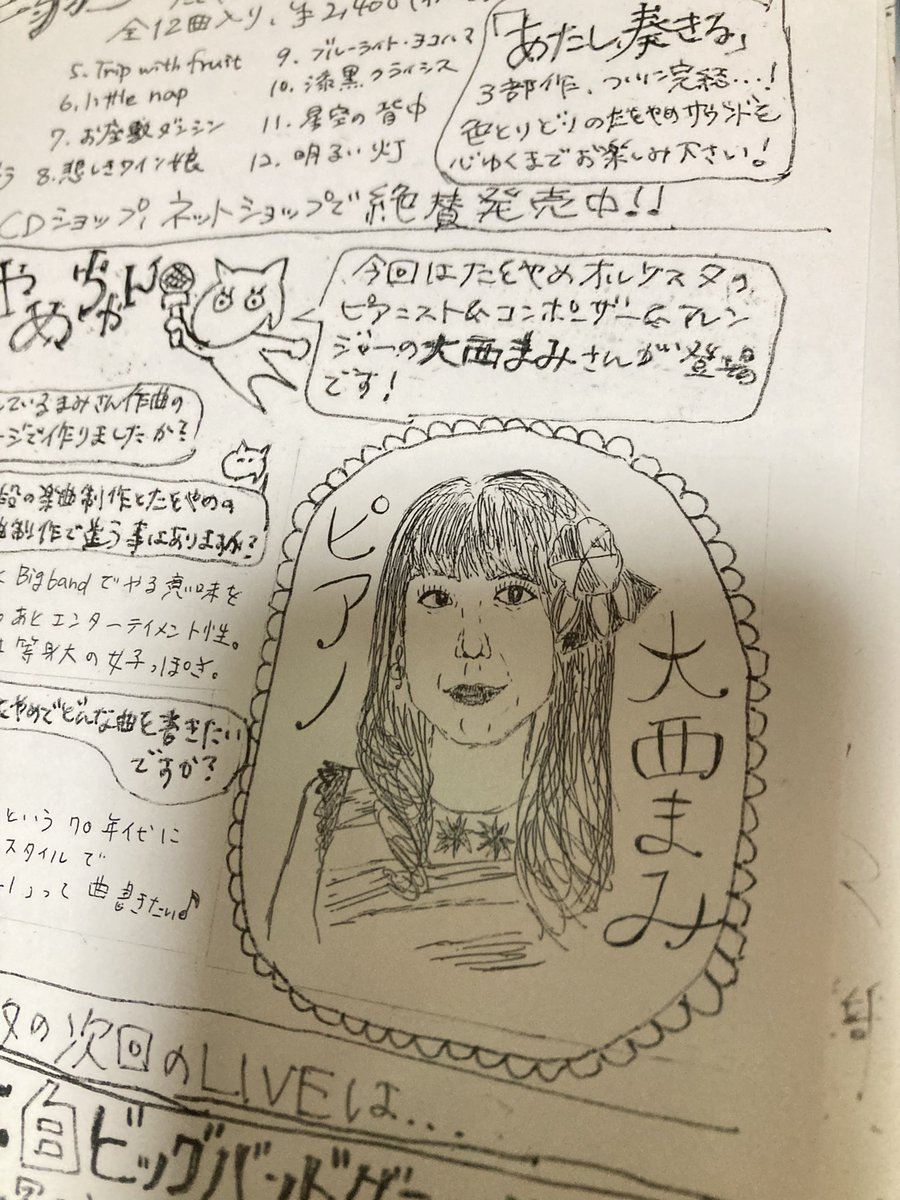 全12曲入り、¥2,400
5. Trip with fruit
6. little nap
7. お座敷ダンシン
8. 悲しきワイン娘
9. ブルーライト・ヨコハマ
10. 漆黒クライシス
11. 星空の背中
12. 明るい灯
「あたし、奏きる」
3部作、ついに完結…!
色とりどりのたをやめサウンドを
心ゆくまでお楽しみ下さい!
CDショップ、ネットショップで絶賛発売中!!
今回はたをやめオルケスタの
ピアニスト&コンポーザー&アレン
ジャーの大西まみさんが登場
です!
しているまみさん作曲の
ージで作りましたか?
段の楽曲制作とたをやめの
曲制作で違う事はありますか?
Big bandでやる意味を
あとエンターテイメント性。
等身大の女子っぽさ。
をやめでどんな曲を書きたい
ですか?
という70年代に
スタイルで
って曲書きたい♪
ピアノ
大西まみ
タの次回のLIVEは....
ビッグバンドゲー